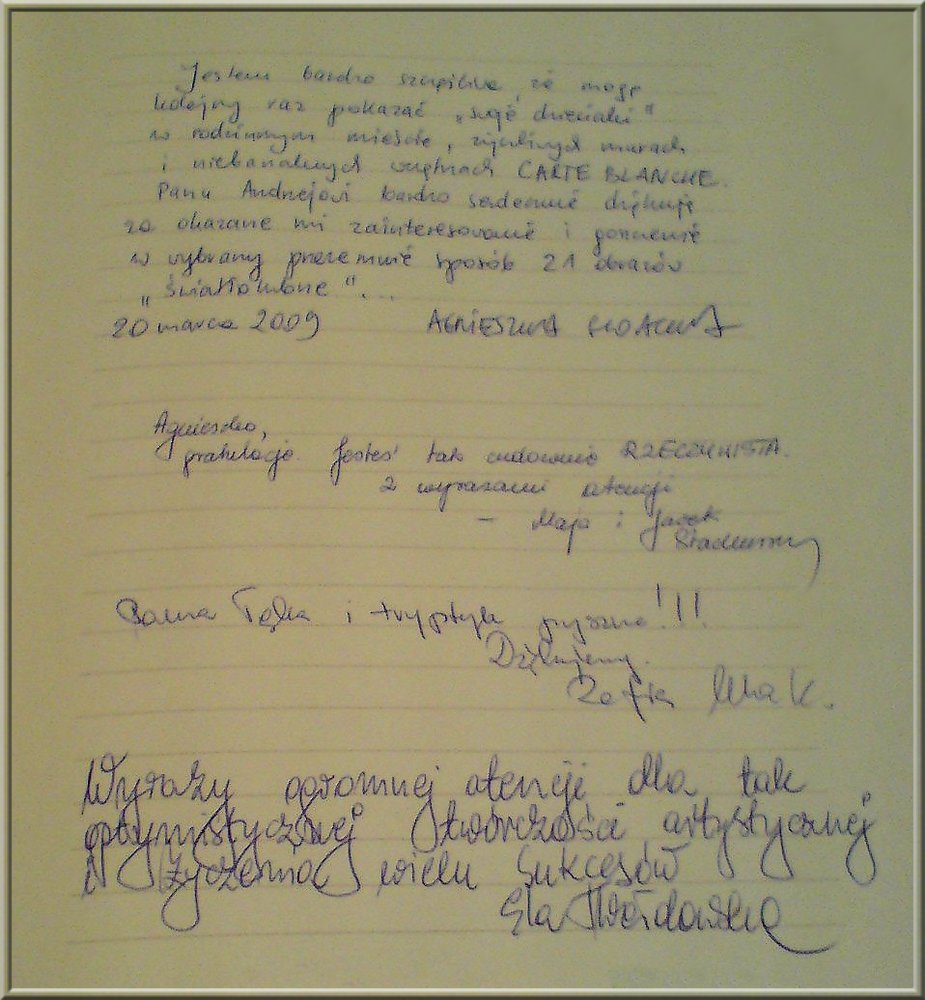 Jestem bardzo szczęśliwa, że mogę
kolejny raz pokazać „swe dzieciaki"
w rodzinnym mieście, życzliwych murach
i niebanalnych wnętrzach CARTE BLANCHE.
Panu Andrzejowi bardzo serdecznie dziękuję
za okazane mi zainteresowanie i
w wybrany przeze mnie sposób 21 obrazów
„Światłolubne"...
20 marca 2009 AGNIESZKA
Agnieszko,
gratulacje. Jesteś tak cudownie RZECZYWISTA.
Z wyrazami atencji
- Maja i Jacek
i tryptyk pyszne!!!
Dziękujemy.
Wyrazy ogromnej atencji dla tak
optymistycznej twórczości artystycznej
i życzenia wielu sukcesów
Ela